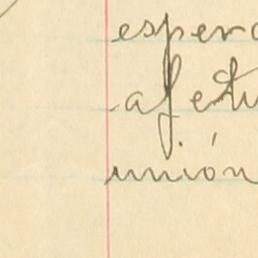 espero
afectu
unión